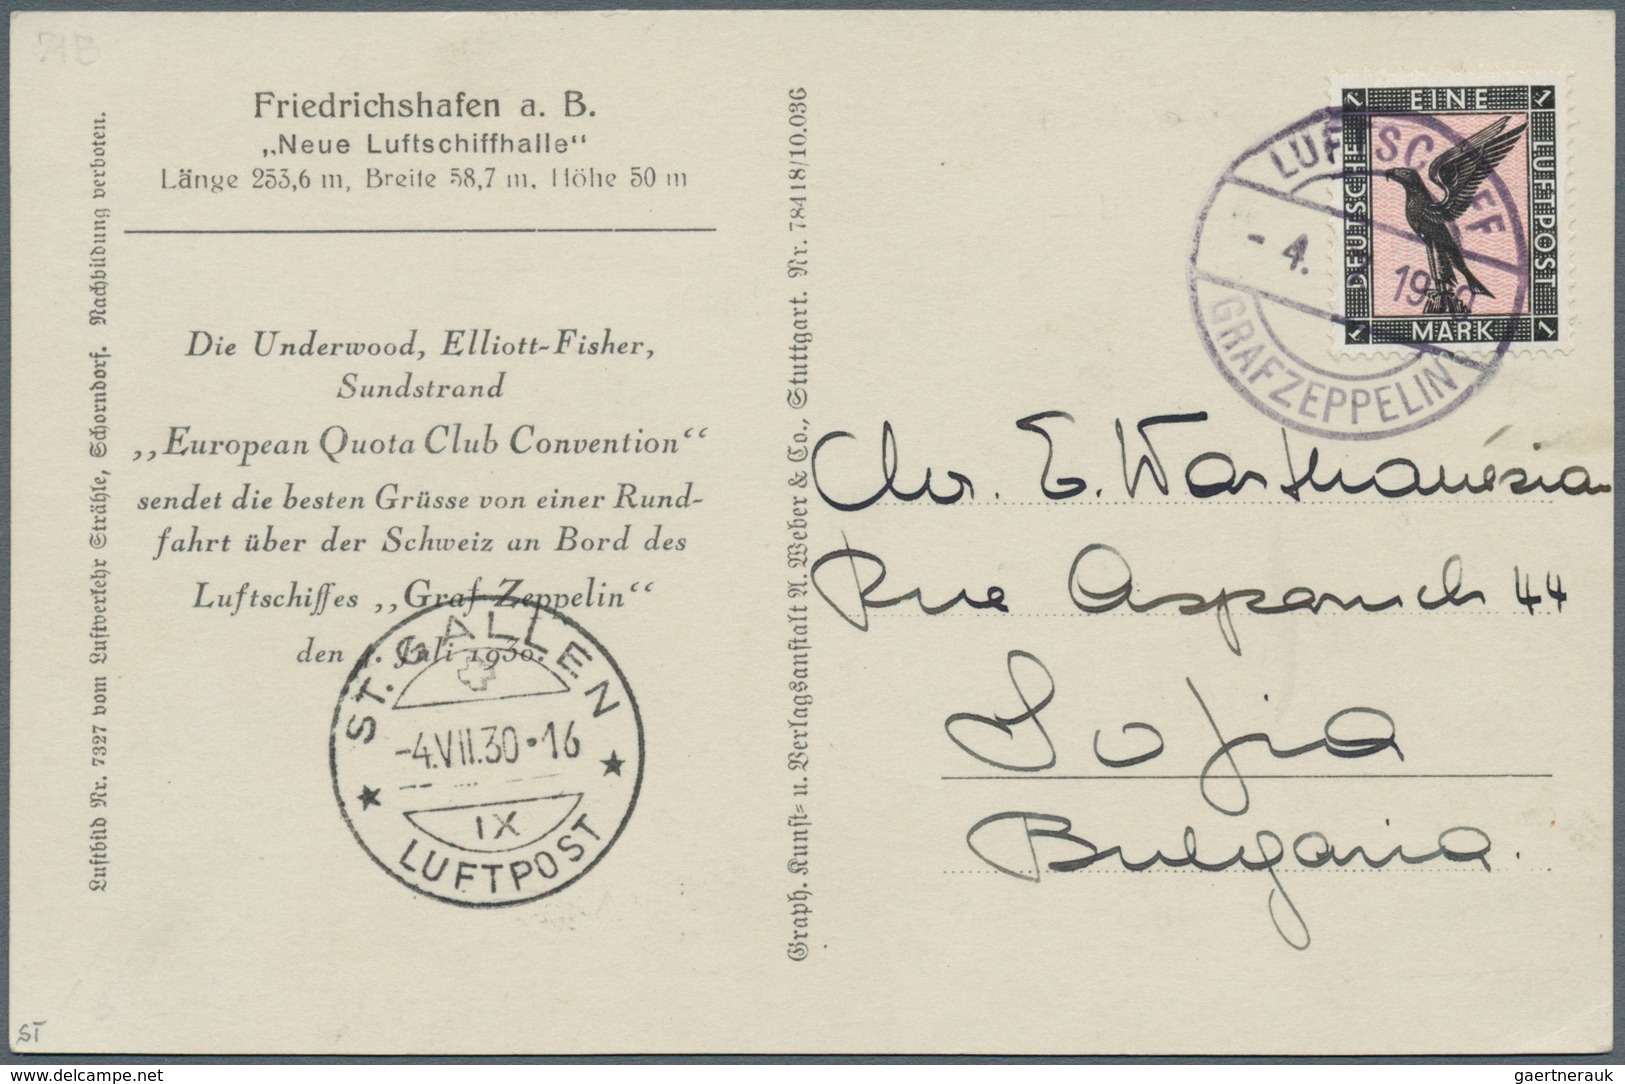 71B
Friedrichshafen a. B.
„Neue Luftschiffhalle“
Länge 253,6 m, Breite 58,7 m, Höhe 50 m
Die Underwood, Elliott-Fisher,
Sundstrand
„European Quota Club Convention“
sendet die besten Grüsse von einer Rund-
fahrt über der Schweiz an Bord des
Luftschiffes „Graf Zeppelin“
den 4. Juli 1930.
ST. GALLEN
-4.VII.30•16
IX
LUFTPOST
Luftbild Nr. 7327 vom Luftverkehr Strähle, Schorndorf. Nachbildung verboten.
Graph. Kunst= u. Verlagsanstalt A. Weber & Co., Stuttgart. Nr. 78418/10.036
1 EINE 1
DEUTSCHE
LUFTPOST
1 MARK 1
LUFTSCHIFF
- 4. 7. 1930
GRAF ZEPPELIN
E. Warthanésian
Rue Asparuch 44
Sofia
Bulgaria.
ST
www.delcampe.net
gaertnerauk